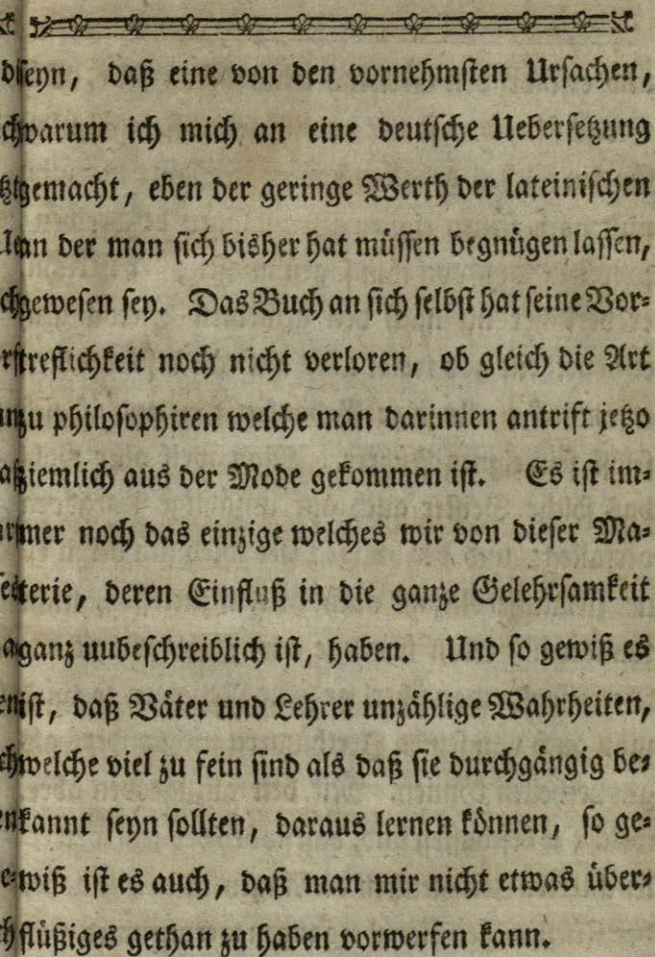 seyn, daß eine von den vornehmsten Ursachen,
warum ich mich an eine deutsche Uebersetzung
gemacht, eben der geringe Werth der lateinischen
an der man sich bisher hat müssen begnügen lassen,
gewesen sey. Das Buch an sich selbst hat seine Vor-
treflichkeit noch nicht verloren, ob gleich die Art
zu philosophiren welche man darinnen antrift jetzo
ziemlich aus der Mode gekommen ist. Es ist im-
mer noch das einzige welches wir von dieser Ma-
terie, deren Einfluß in die ganze Gelehrsamkeit
ganz uubeschreiblich ist, haben. Und so gewiß es
ist, daß Väter und Lehrer unzählige Wahrheiten,
welche viel zu fein sind als daß sie durchgängig be-
kannt seyn sollten, daraus lernen können, so ge-
wiß ist es auch, daß man mir nicht etwas über-
flüßiges gethan zu haben vorwerfen kann.